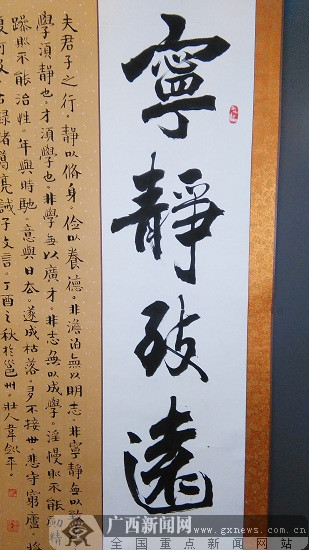 寧靜致遠
夫君子之行。靜以脩身。儉以養德。非澹泊無以明志。非寧靜無以致
學須靜也。才須學也。非學無以廣才。非志無以成學。淫慢則不能勵精
躁則不能治性。年與時馳。意與日去。遂成枯落。多不接世。悲守窮廬。將
復何及。右錄諸葛亮誡子文言。丁酉之秋於邕州。壯人韋
平。
广西新闻网
www.gxnews.com.cn
全国重点新闻网站